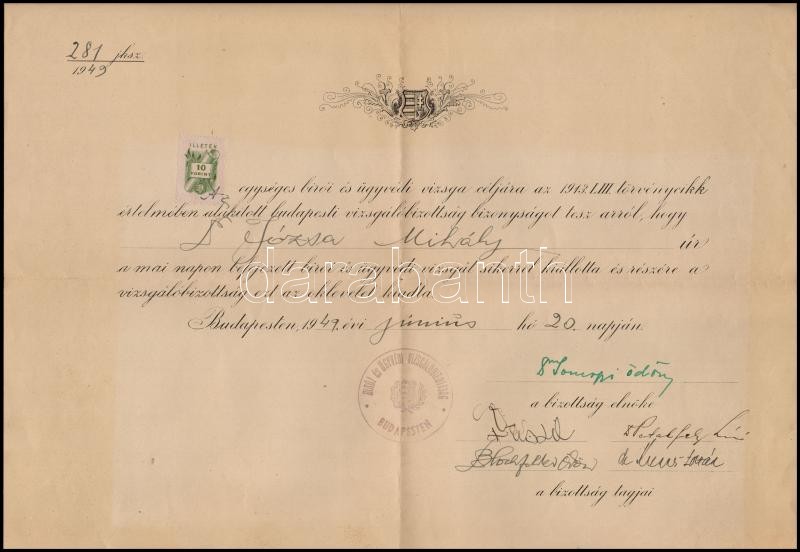 281 jksz.
1949
ILLETÉK
10
FORINT
Az egységes birói és ügyvédi vizsga céljára az 1913.LIII. törvénycikk
értelmében alakitott budapesti vizsgálóbizottság bizonyságot tesz arról, hogy
Dr Józsa Mihály úr
a mai napon befejezett birói és ügyvédi vizsgát sikerrel kiállotta és részére a
vizsgálóbizottság ezt az oklevelet kiadta.
darabanth
Budapesten, 1949. évi június hó 20. napján.
BIRÓI ÉS ÜGYVÉDI VIZSGÁLÓBIZOTTSÁG
BUDAPESTEN
Ödön
a bizottság elnöke
a bizottság tagjai